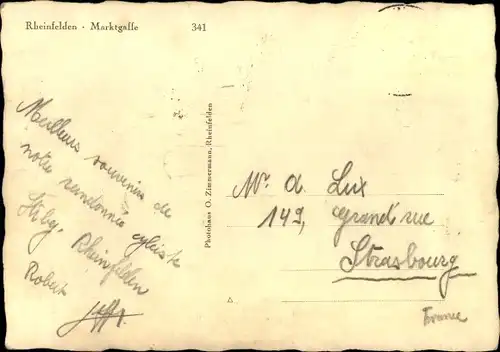 Rheinfelden · Marktgasse
341
Meilleurs souvenirs de
notre randonnée cycliste
Stbg. Rheinfelden
Robert
Photohaus O. Zimmermann, Rheinfelden
Mr. A. Lux
142, Grand'rue
Strasbourg
France